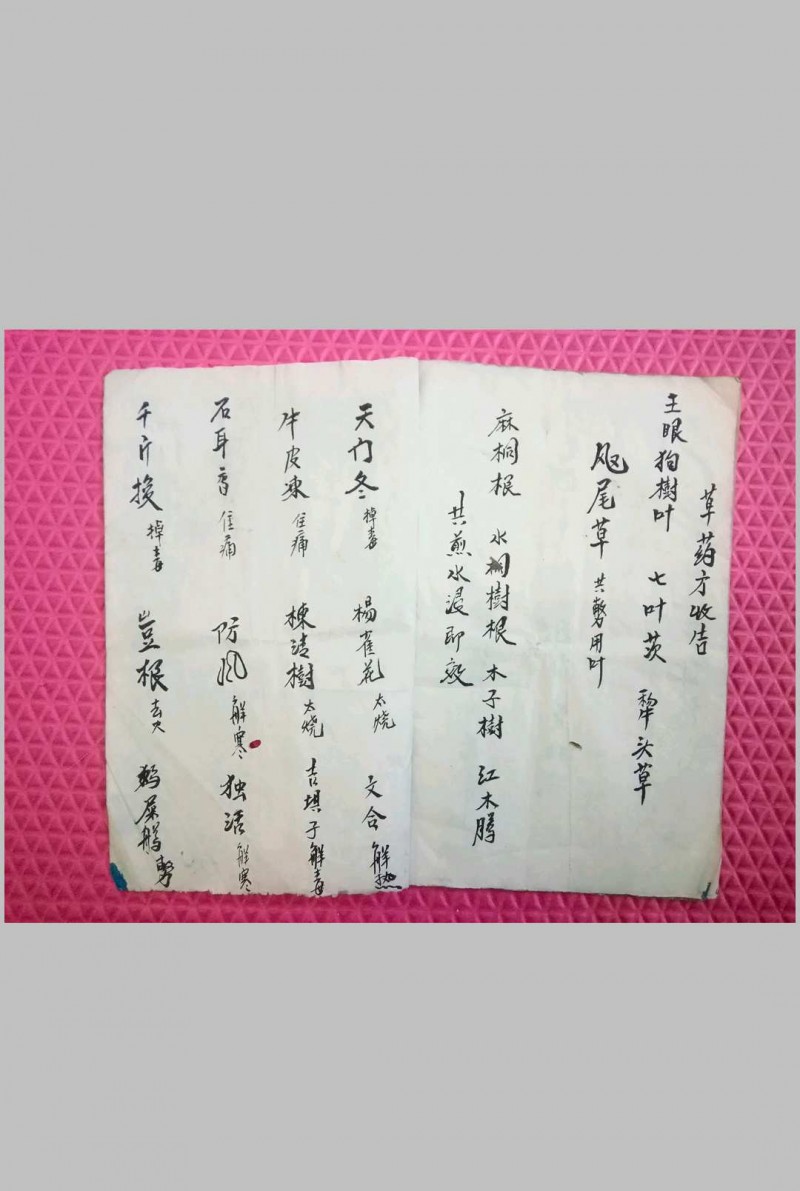 草药方收告
王眼狗樹叶 七叶茨 犂头草
尾草 共敷用叶
麻桐根 水桐樹根 木子樹 红木腾
共煎水浸即效
天门冬 掉毒 楊雀花 太烧 文合 解热
牛皮凍 住痛 楝清樹 太烧 吉埧子 解毒
石耳香 住痛 防风 解寒 独活 解寒
千斤掞 掉毒 豈根 去火 鹅屎